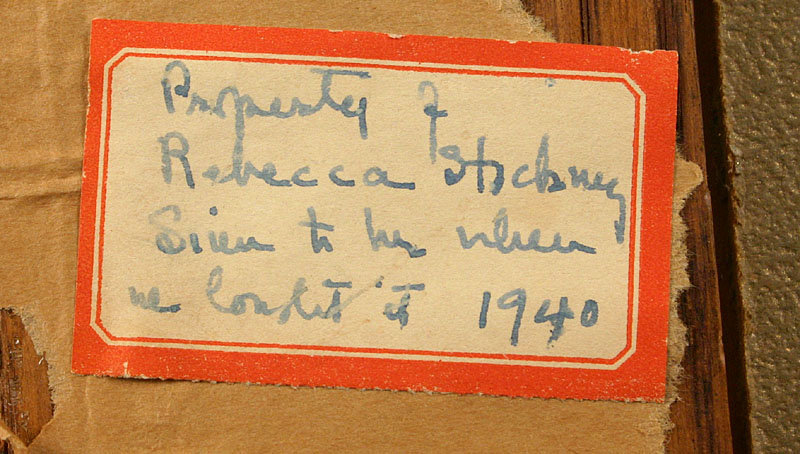 Property of
Rebecca Stickney
Given to her when
we bought it 1940